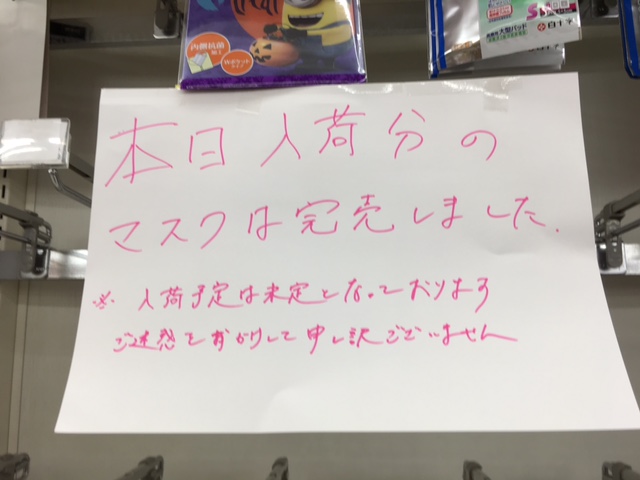 内側抗菌
Wポケット
大型パッド
白十字
本日入荷分の
マスクは完売しました.
※ 入荷予定は未定となっております
ご迷惑をおかけして申し訳ございません